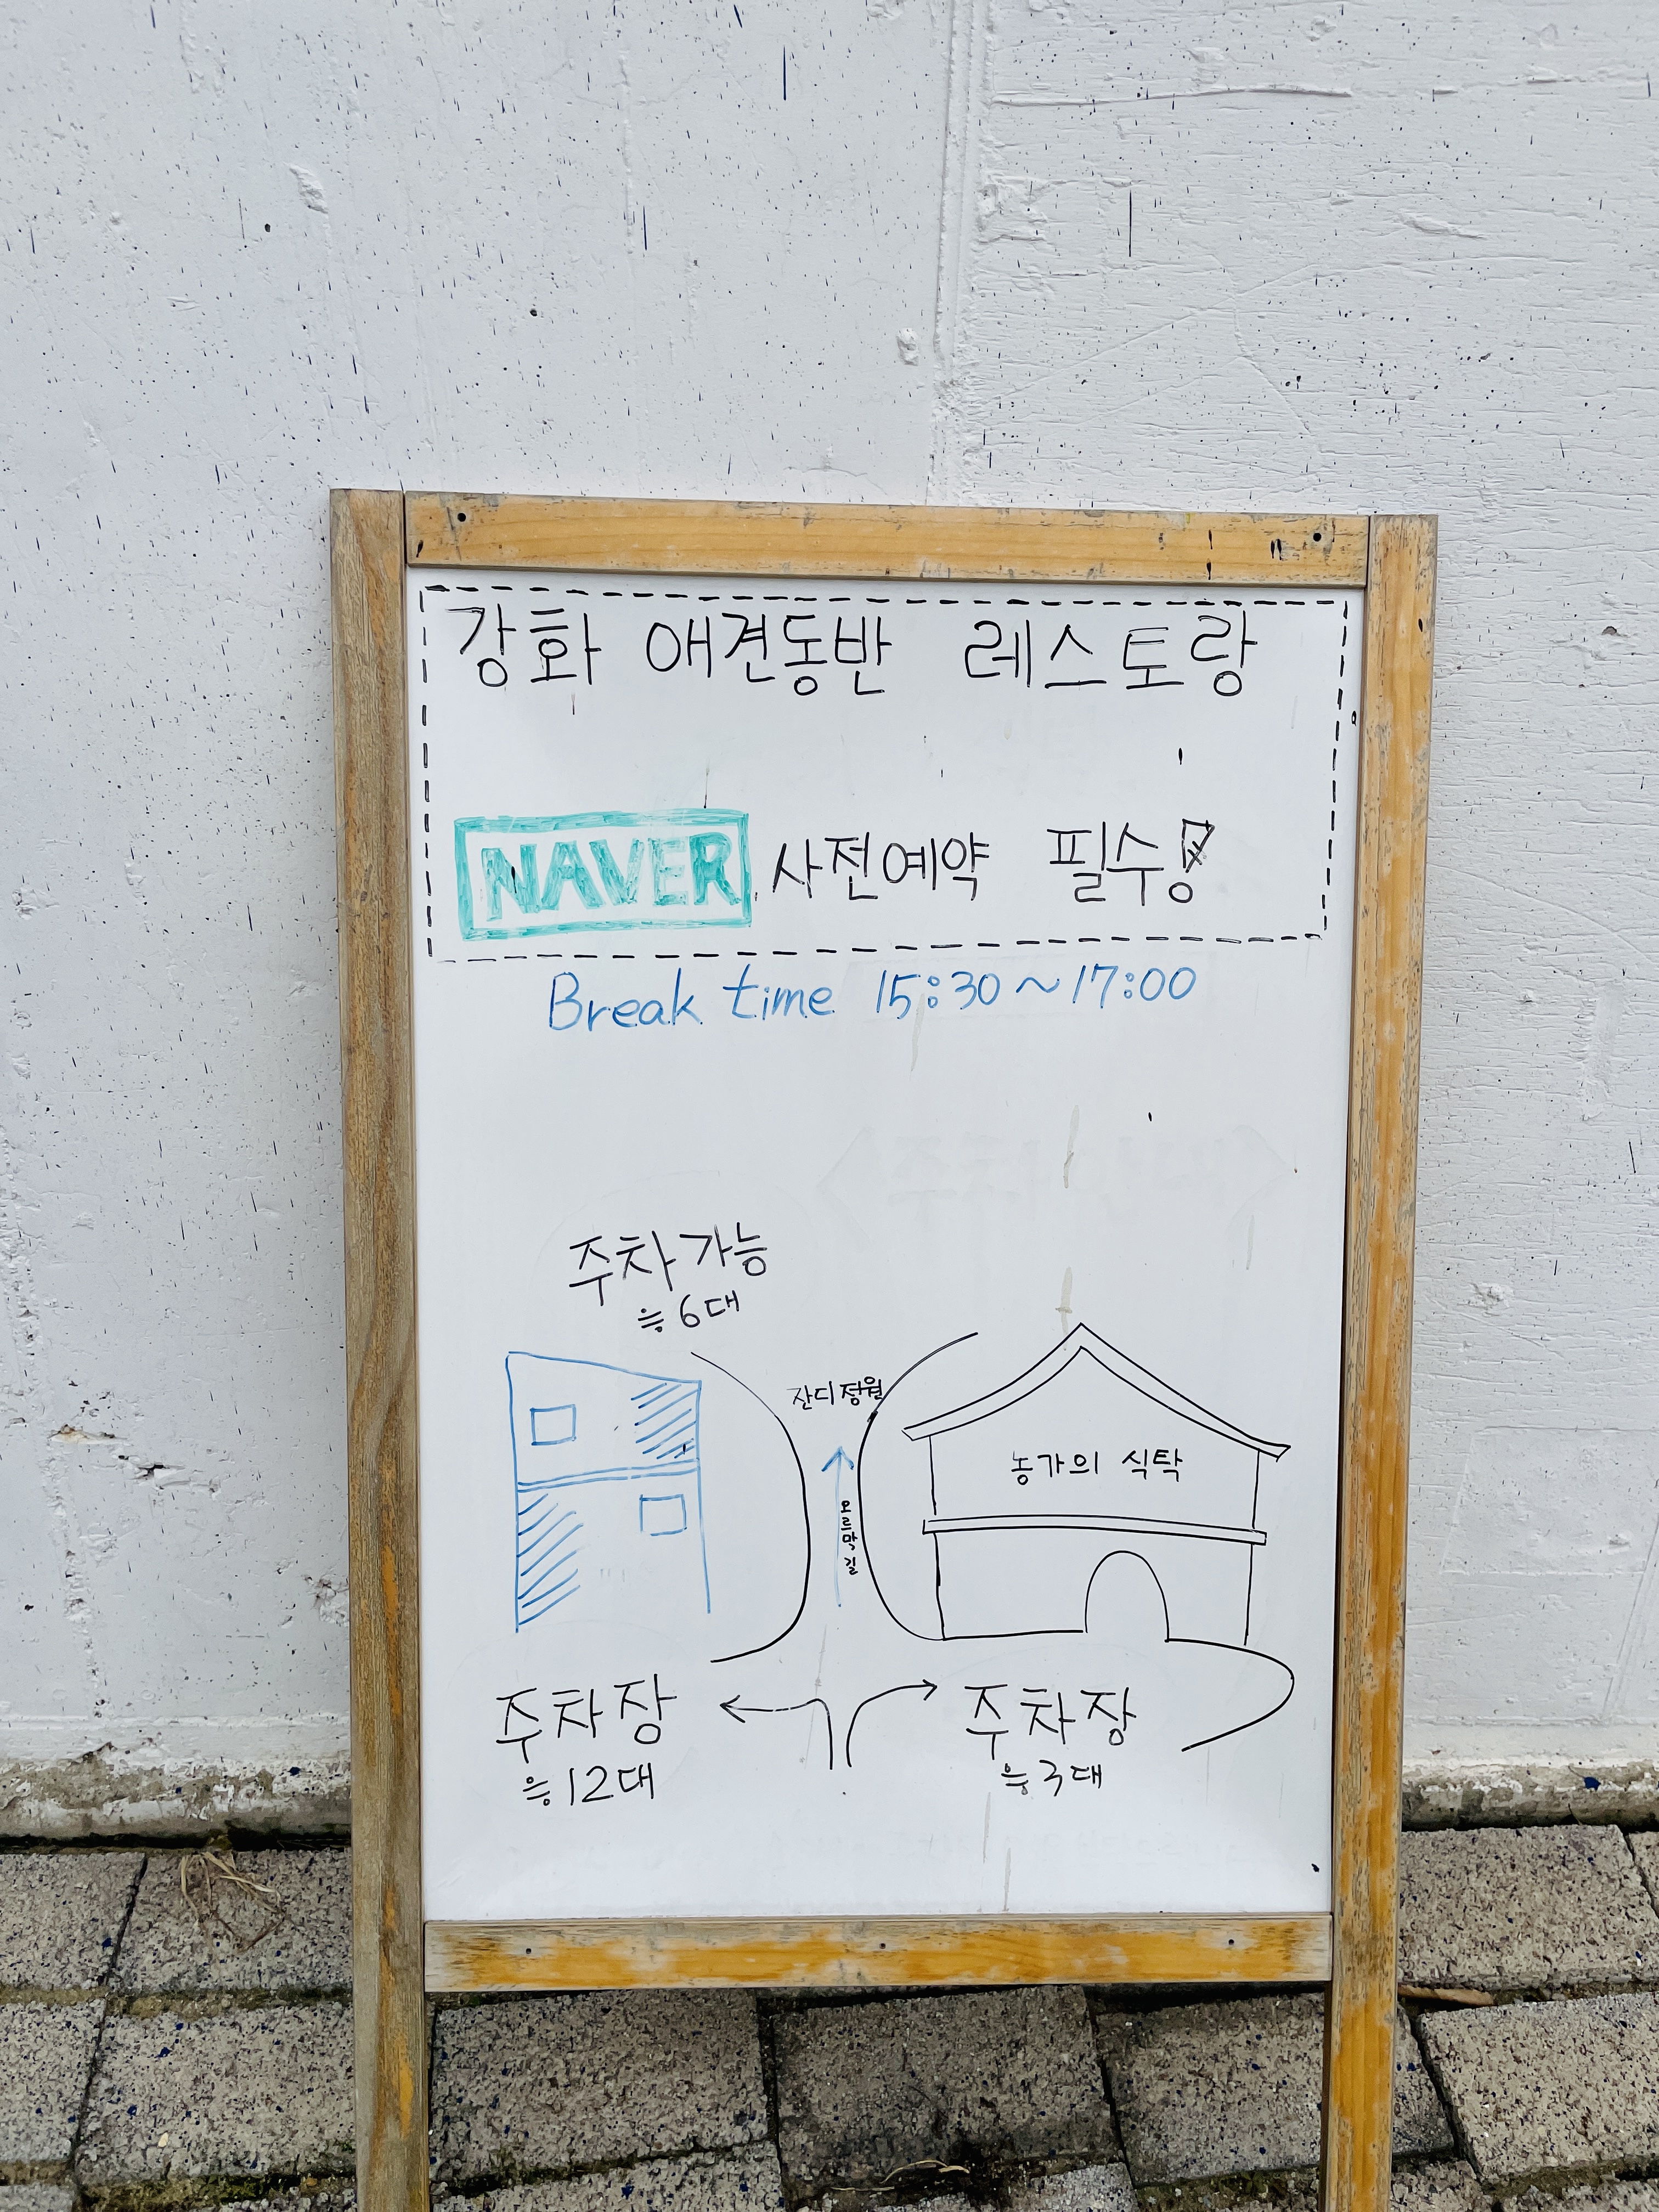 강화 애견동반 레스토랑
NAVER 사전예약 필수!
Break time 15:30~17:00
주차가능
≒6대
잔디정원
오르막길
농가의 식탁
주차장
≒12대
주차장
≒3대